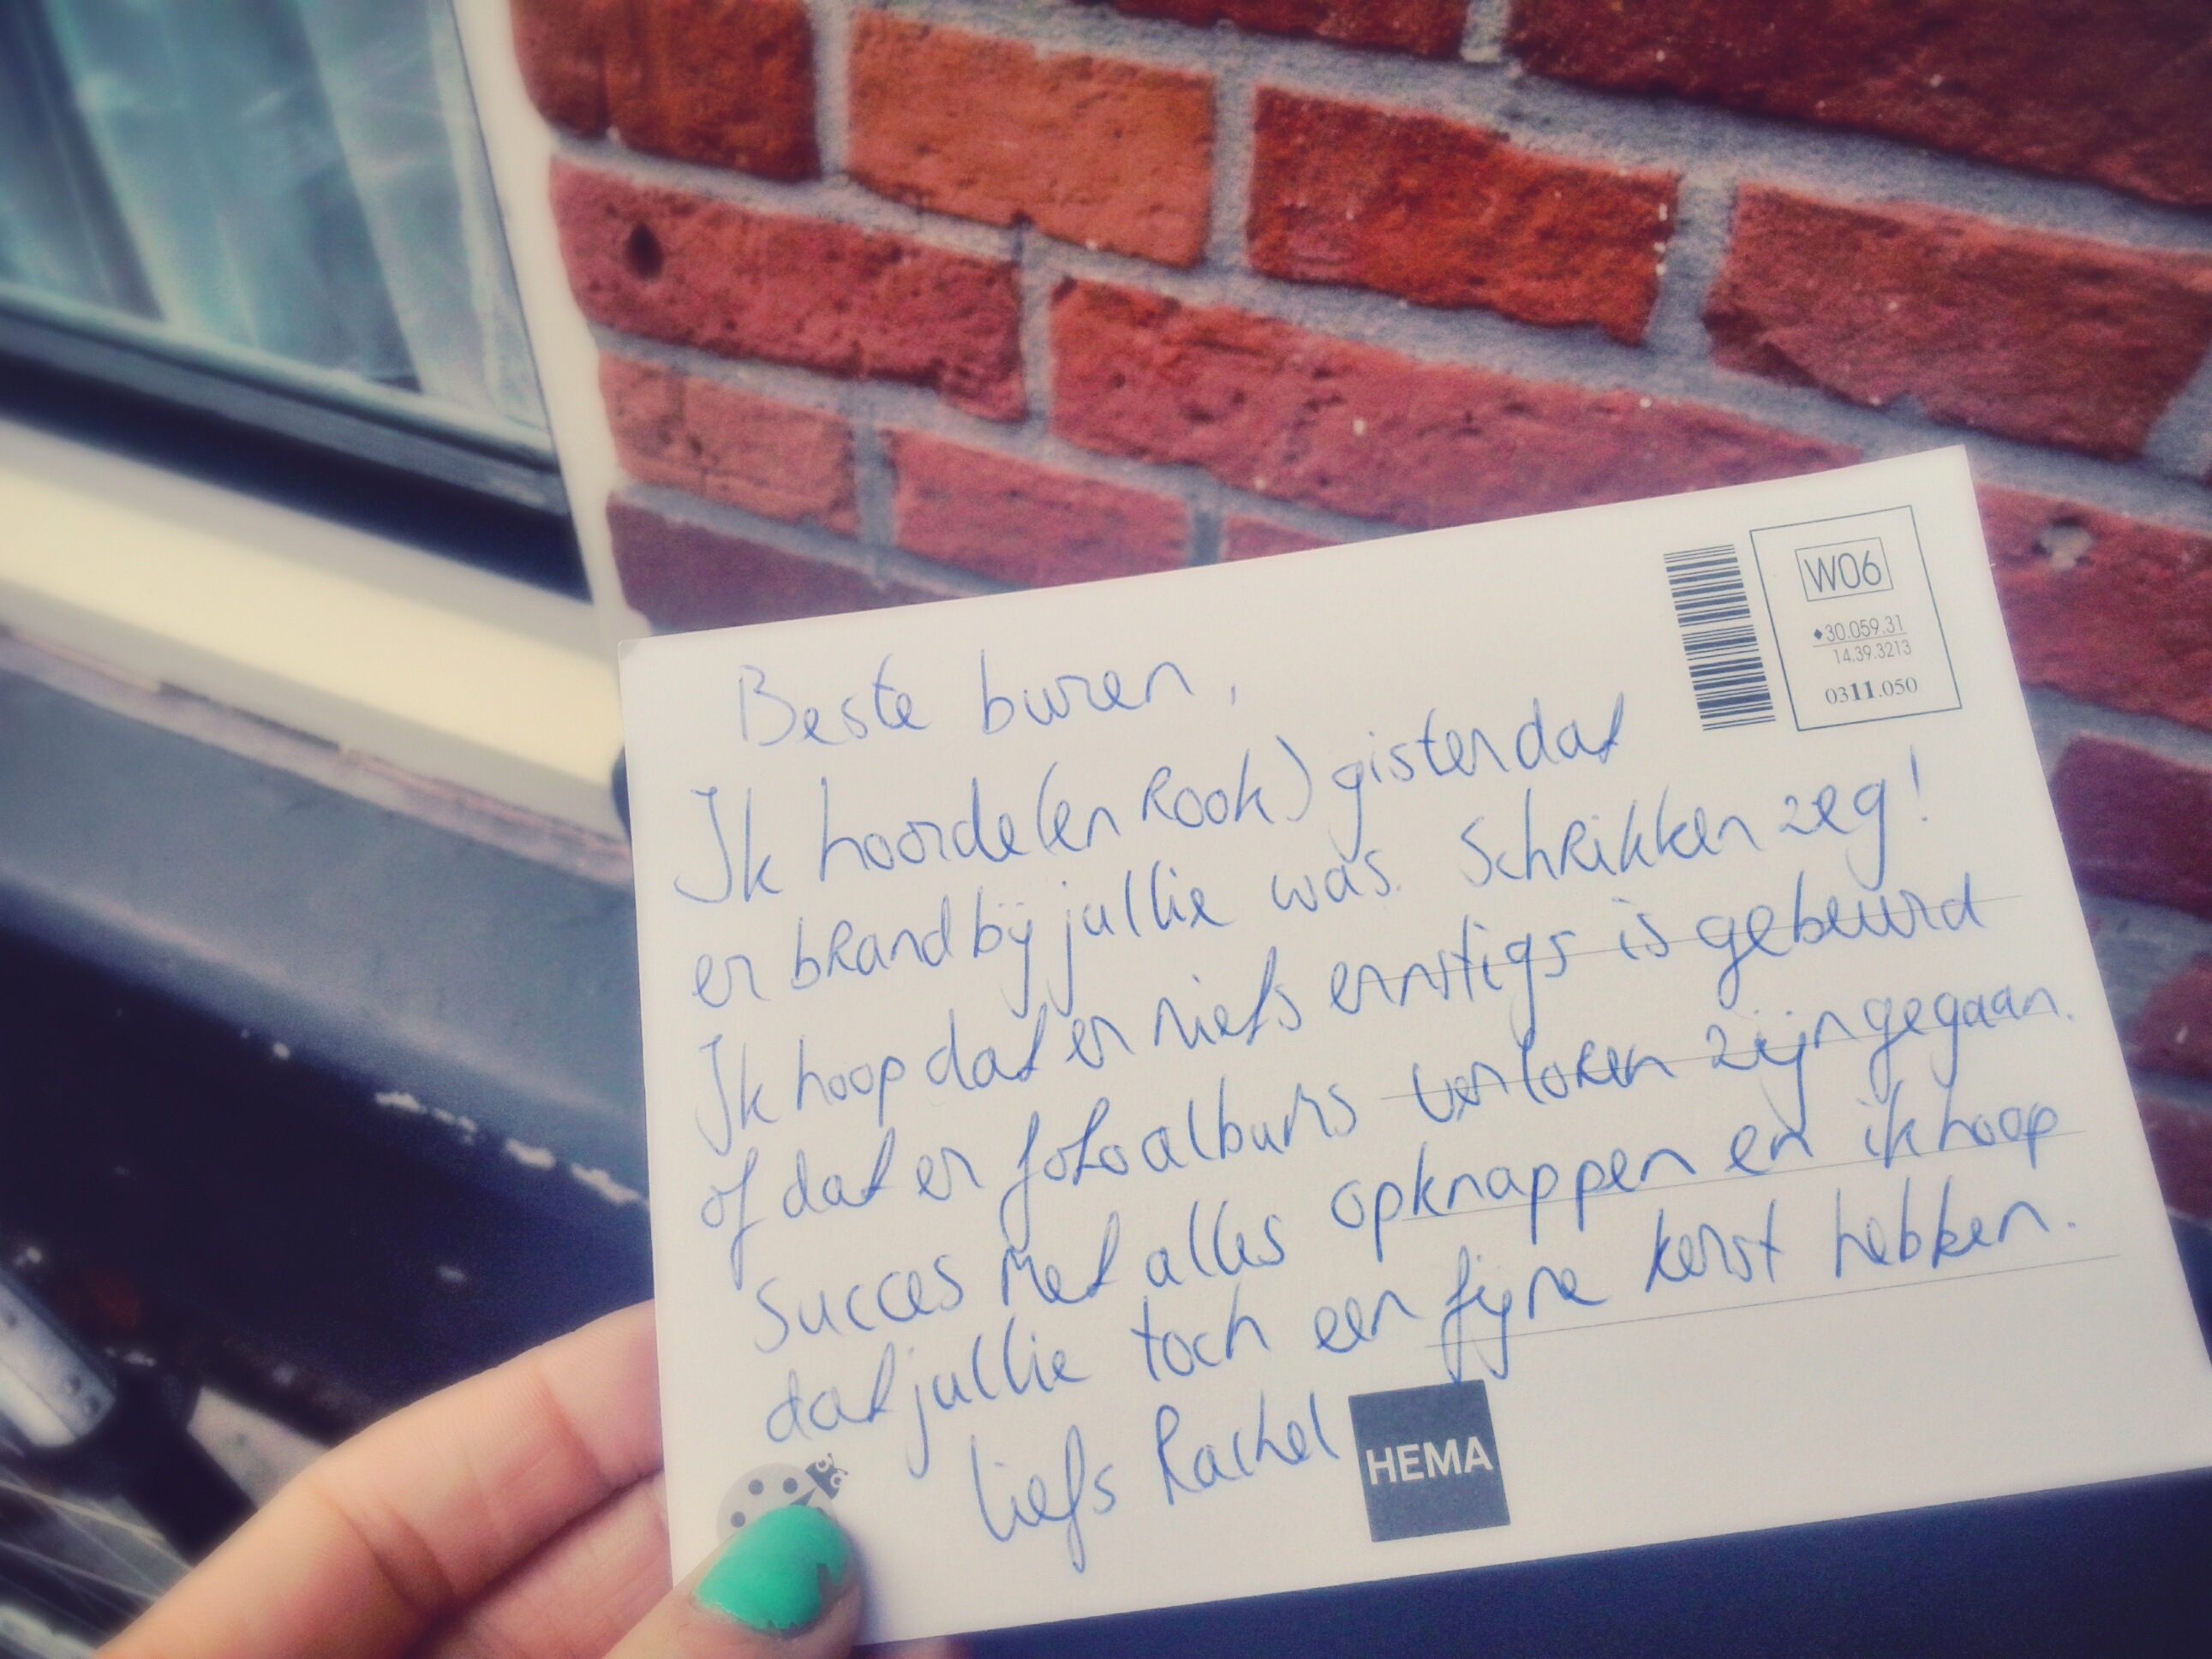 Beste buren,
Ik hoorde (en Rook) gister dat
er brand bij jullie was. Schrikken zeg!
Ik hoop dat er niets ernstigs is gebeurd
of dat er fotoalbums verloren zijn gegaan.
Succes met alles opknappen en ik hoop
dat jullie toch een fijne kerst hebben.
liefs Rachel
HEMA
W06
♦30.059.31
14.39.3213
0311.050